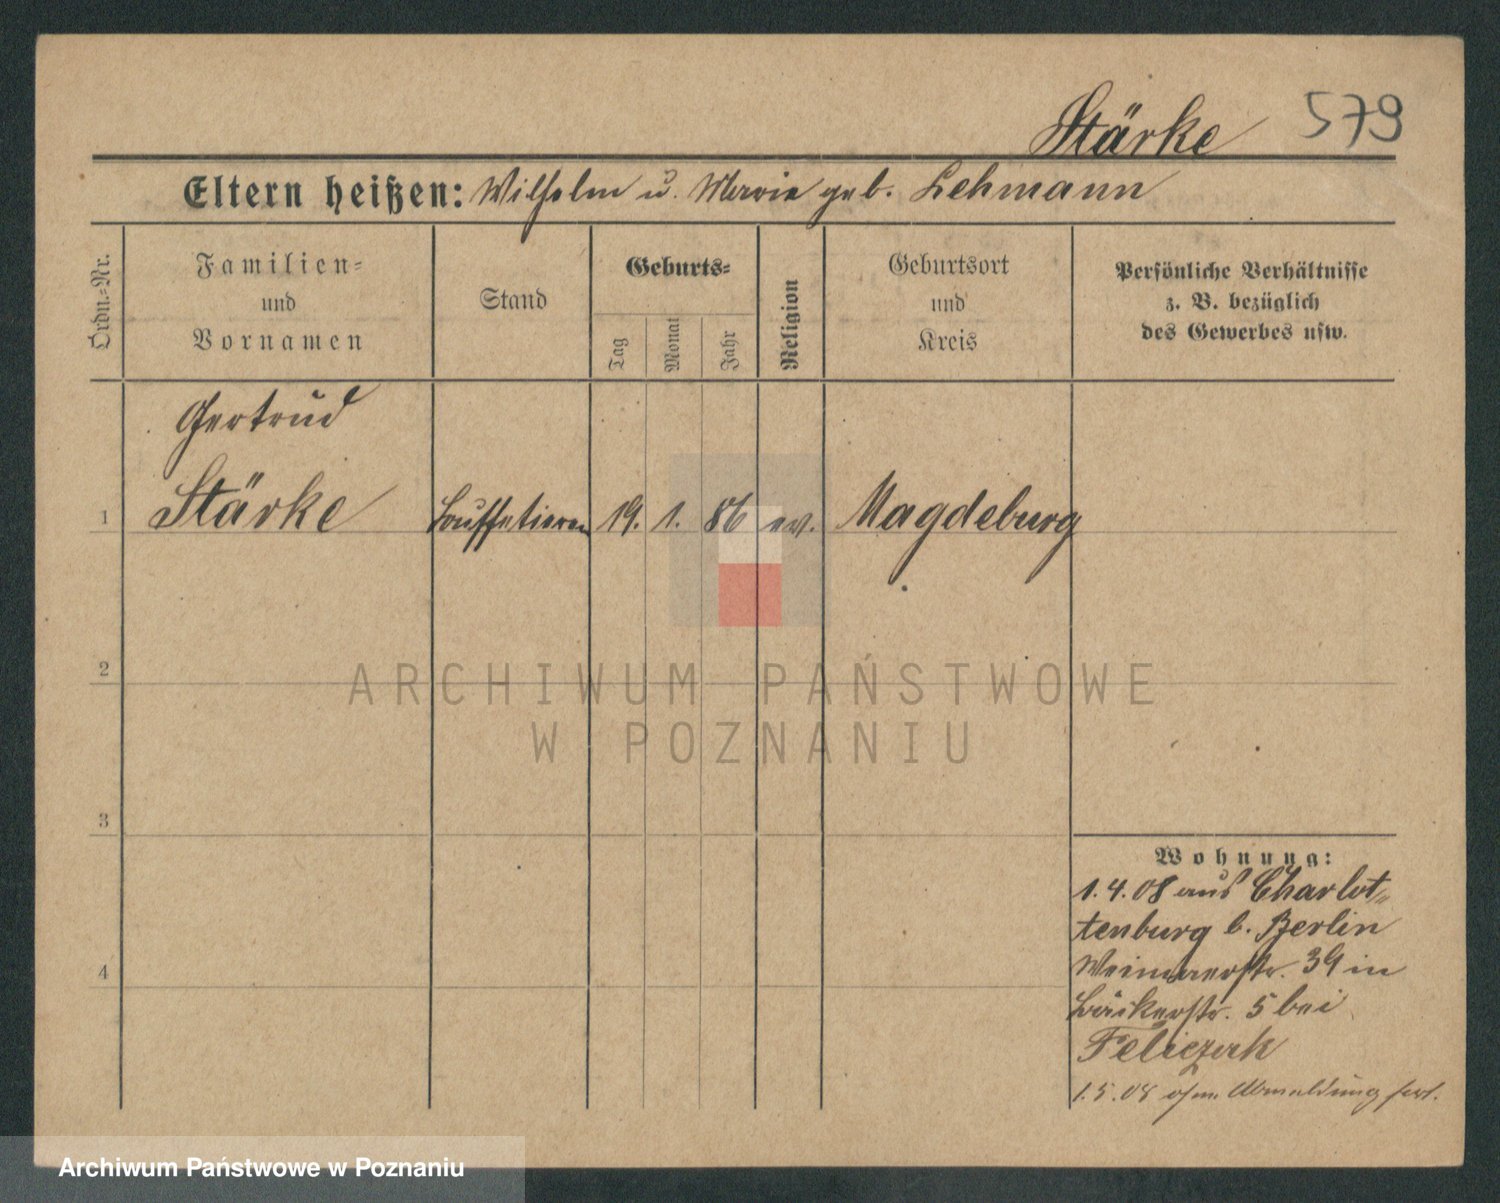 Stärke 579
Eltern heißen: Wilhelm u. Marie geb. Lehmann
Ordn.-Nr.
Familien-
und
Vornamen
Stand
Geburts-
Tag
Monat
Jahr
Religion
Geburtsort
und
Kreis
Persönliche Verhältnisse
z. B. bezüglich
des Gewerbes usw.
Gertrud
1 Stärke Buffetieren 19. 1. 86 ev. Magdeburg
2
ARCHIWUM PAŃSTWOWE
W POZNANIU
3
4
Wohnung:
1.4.08 aus Charlot-
tenburg b. Berlin
Weimarerstr. 39 in
Bäckerstr. 5 bei
Feliczak
1.5.08 ohne Abmeldung fort.
Archiwum Państwowe w Poznaniu